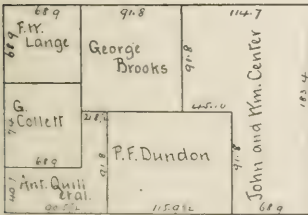 68.9
91.8
114.7
F.W.
Lange
68.9
George
Brooks
91.8
John and Wm. Center
183.4
G.
Collett
68.9
45.10
91.8
P.F. Dundon
91.8
Ant. Quill
et al.
115.9½
68.9